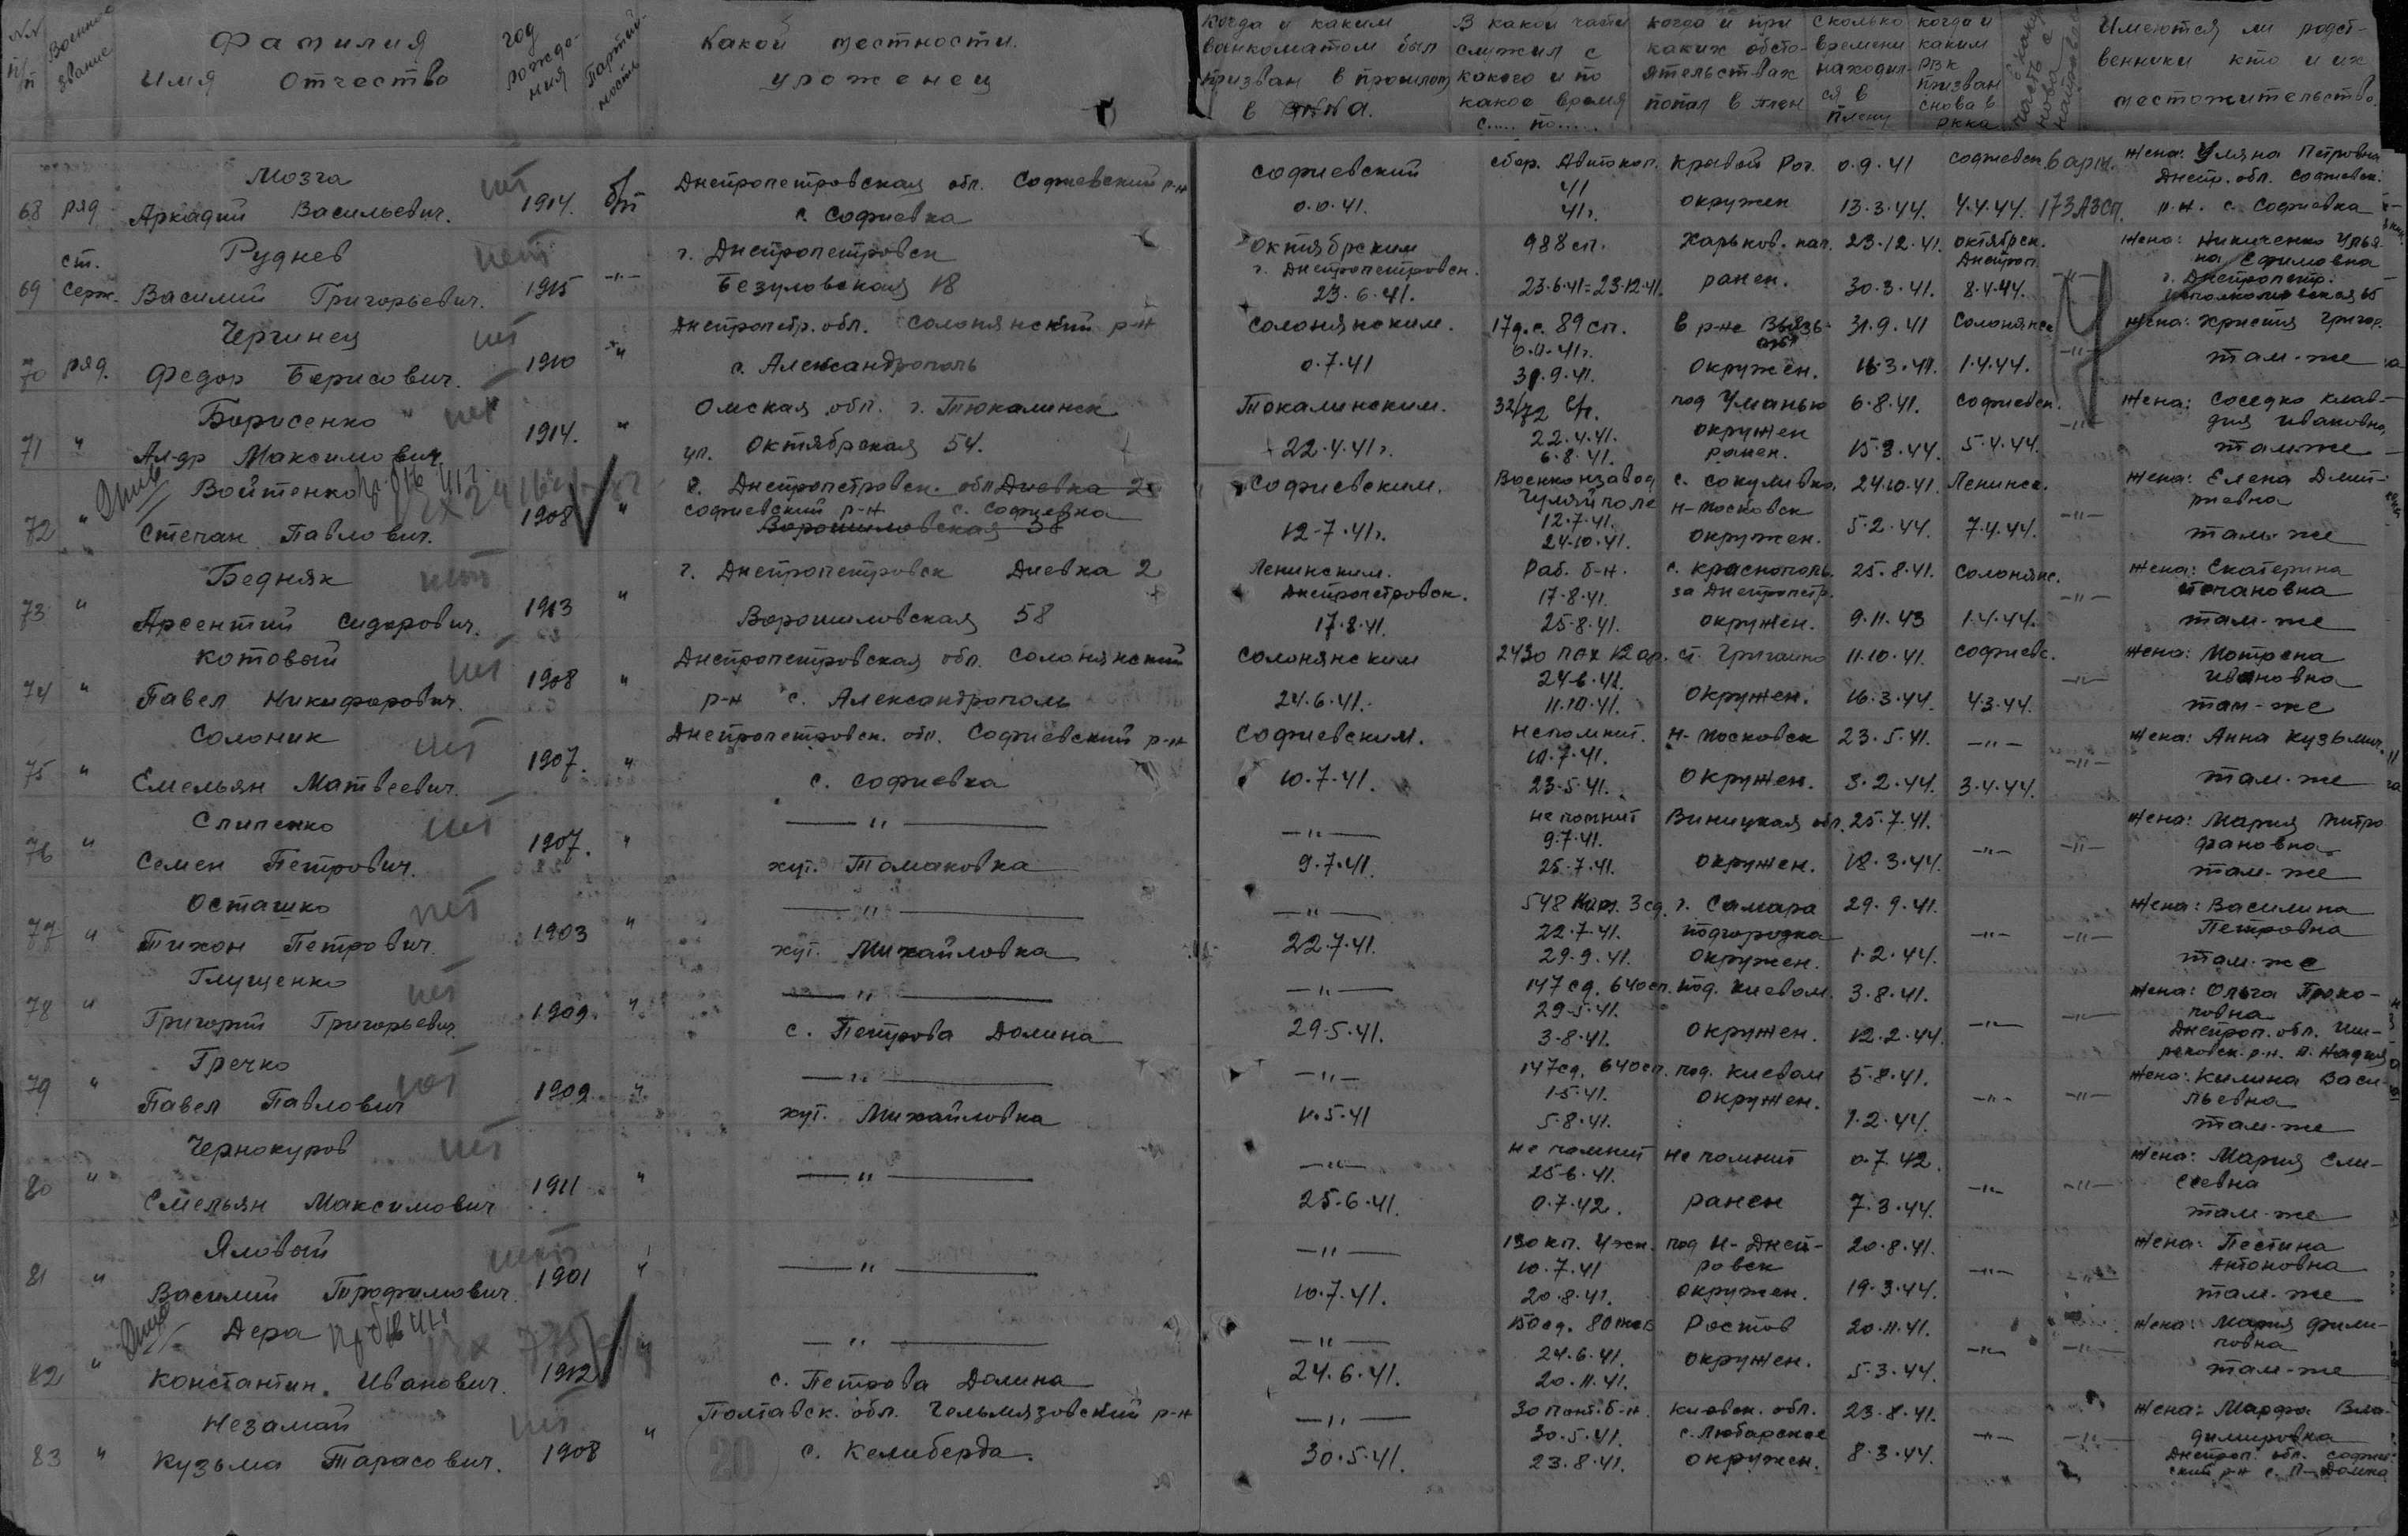 №№ п/п
Военное звание
Фамилия
Имя Отчество
год рождения
Партийность
Какой местности
уроженец
Когда и каким
военкоматом был
призван в прошлом
в
В какой части
служил с
какого и по
какое время
с..... по.....
когда и при
каких обсто-
ятельствах
попал в плен
Сколько
времени
находил-
ся в
плену
когда и
каким
РВК
призван
снова в
РККА
Имеются ли родст-
венники кто и их
местожительство.
68 ряд. Мозга нет
Аркадий Васильевич. 1914. б/п
Днепропетровская обл. Софиевский р-н
с. Софиевка
Софиевский
0.0.41.
41
41г.
Кривой Рог.
окружен
0.9.41
13.3.44.
Софиевск.
4.4.44.
6 арм.
173 АЗСП.
Жена: Уляна Петровна
Днепр. обл. Софиевск.
р-н. с. Софиевка
69 ст. серж. Руднев нет
Василий Григорьевич. 1915 -"-
г. Днепропетровск
18
Октябрским
г. Днепропетровск.
23.6.41.
988 сп.
23.6.41=23.12.41.
Харьков. нап.
ранен.
23.12.41.
30.3.41.
октябрск.
Днепроп.
8.4.44.
-"-
Жена: Никиченко Улья-
на Ефимовна
г. Днепропетр.
70 ряд. Чергинец нет
Федор Борисович. 1910 -"
Днепропетр. обл. Солонянский р-н
с. Александрополь
Солонянским.
0.7.41
17 д.с. 89 сп.
31.9.41.
в р-не
Окружен.
31.9.41
16.3.41.
Солонянск
1.4.44.
-"-
Жена: Христия Григор.
там-же
71 " Борисенко нет
Ал-др Максимович 1914. "
Омская обл. г. Тюкалинск
ул. Октябрская 54.
Токалинским.
22.4.41г.
32/72
22.4.41.
6.8.41.
под Уманью
окружен
ранен.
6.8.41.
15.3.44.
Софиевск.
5.4.44.
-"-
Жена: Соседко Клав-
дия Ивановна
там-же
72 " Войтенко
Степан Павлович. 1908 "
Днепропетровск. обл Диевка 2
Софиевский р-н с. Софиевка
Ворошиловская 58
Софиевским.
12-7.41г.
Военконзавод
Гуляйполе
12.7.41.
24.10.41.
с. Сокуливка
Н-Московск
окружен.
24.10.41.
5.2.44.
Ленинск.
7.4.44.
-"-
Жена: Елена Дмит-
риевна
там-же
73 " Бедняк нет
Арсентий Сидорович. 1913 "
г. Днепропетровск Диевка 2
Ворошиловская 58
Ленинским.
Днепропетровск.
17.8.41.
Раб. б-н.
17.8.41.
25.8.41.
с. Краснополь.
за Днепропетр.
окружен.
25.8.41.
9.11.43
Солонянс.
1.4.44.
-"-
Жена: Екатерина
Степановна
там-же
74 " Котовой нет
Павел Никифорович. 1908 "
Днепропетровская обл. Солонянский
р-н с. Александрополь
Солонянским
24.6.41.
2430 пах 12 ар.
24-6.41.
11.10.41.
ст. Григоино
Окружен.
11.10.41.
16.3.44.
Софиевс.
4.3.44.
-"-
Жена: Мотрена
Ивановна
там-же
75 " Солоник нет
Емельян Матвеевич. 1907. "
Днепропетровск. обл. Софиевский р-н
с. Софиевка
Софиевским.
10.7.41.
Непомнит.
10.7.41.
23.5.41.
Н-Московск
Окружен.
23.5.41.
3.2.44.
-"-
3.4.44.
-"-
Жена: Анна Кузьмин.
там-же
76 " Слипенко нет
Семен Петрович. 1907. "
-"-
хут. Томаковка
-"-
9.7.41.
не помнит
9.7.41.
25.7.41.
Виницкая обл.
окружен.
25.7.41.
18.3.44.
-"-
-"-
Жена: Мария Митро
фановна
там-же
77 " Осташко нет
Тихон Петрович. 1903 "
-"-
хут. Михайловка
-"-
22.7.41.
22.7.41.
29.9.41.
г. Самара
подгородка
Окружен.
29.9.41.
1.2.44.
-"-
-"-
Жена: Василина
Петровна
там-же
78 " Глущенко нет
Григорий Григорьевич. 1909. "
-"-
с. Петрова Долина
-"-
29.5.41.
147 сд. 640 сп.
29-5.41.
3-8.41.
под. Киевом.
Окружен.
3.8.41.
12.2.44.
-"-
-"-
Жена: Ольга Проко-
повна
Днепроп. обл.
р-н. п. Надия
79 " Гречко нет
Павел Павлович 1909. "
-"-
хут. Михайловка
-"-
1.5.41
147 сд. 640 сп.
1-5.41.
5.8.41.
под. Киевом
окружен.
5.8.41.
1.2.44.
-"-
-"-
Жена: Килина Васи-
льевна
там-же
80 " Чернокуров нет
Емельян Максимович 1911 "
-"-
-"-
25.6.41.
не помнит
25.6.41.
0.7.42.
не помнит
ранен
0.7.42.
7.3.44.
-"-
-"-
Жена: Мария Ели-
сеевна
там-же
81 " Яловой нет
Василий Трофимович. 1901 "
-"-
-"-
10.7.41.
130 кп.
10.7.41
20.8.41.
под Н-Днеп-
ровск
окружен.
20.8.41.
19.3.44.
-"-
-"-
Жена: Пестина
Антоновна
там-же
82 " Дера
Константин. Иванович. 1912 "
-"-
с. Петрова Долина
-"-
24.6.41.
150 сд.
24.6.41.
20.11.41.
Ростов
окружен.
20.11.41.
5.3.44.
-"-
-"-
Жена: Мария Фили-
повна
там-же
83 " Незамай нет
Кузьма Тарасович. 1908 "
Полтавск. обл. Гельмязовский р-н
с. Келиберда.
20
-"-
30.5.41.
30 понт. б-н.
30.5.41.
23.8.41.
Киевск. обл.
с. Любарское
окружен.
23.8.41.
8.3.44.
-"-
-"-
Жена: Марфа Вла-
димировна
Днепроп. обл. Софиев
ский р-н с. П-Долина